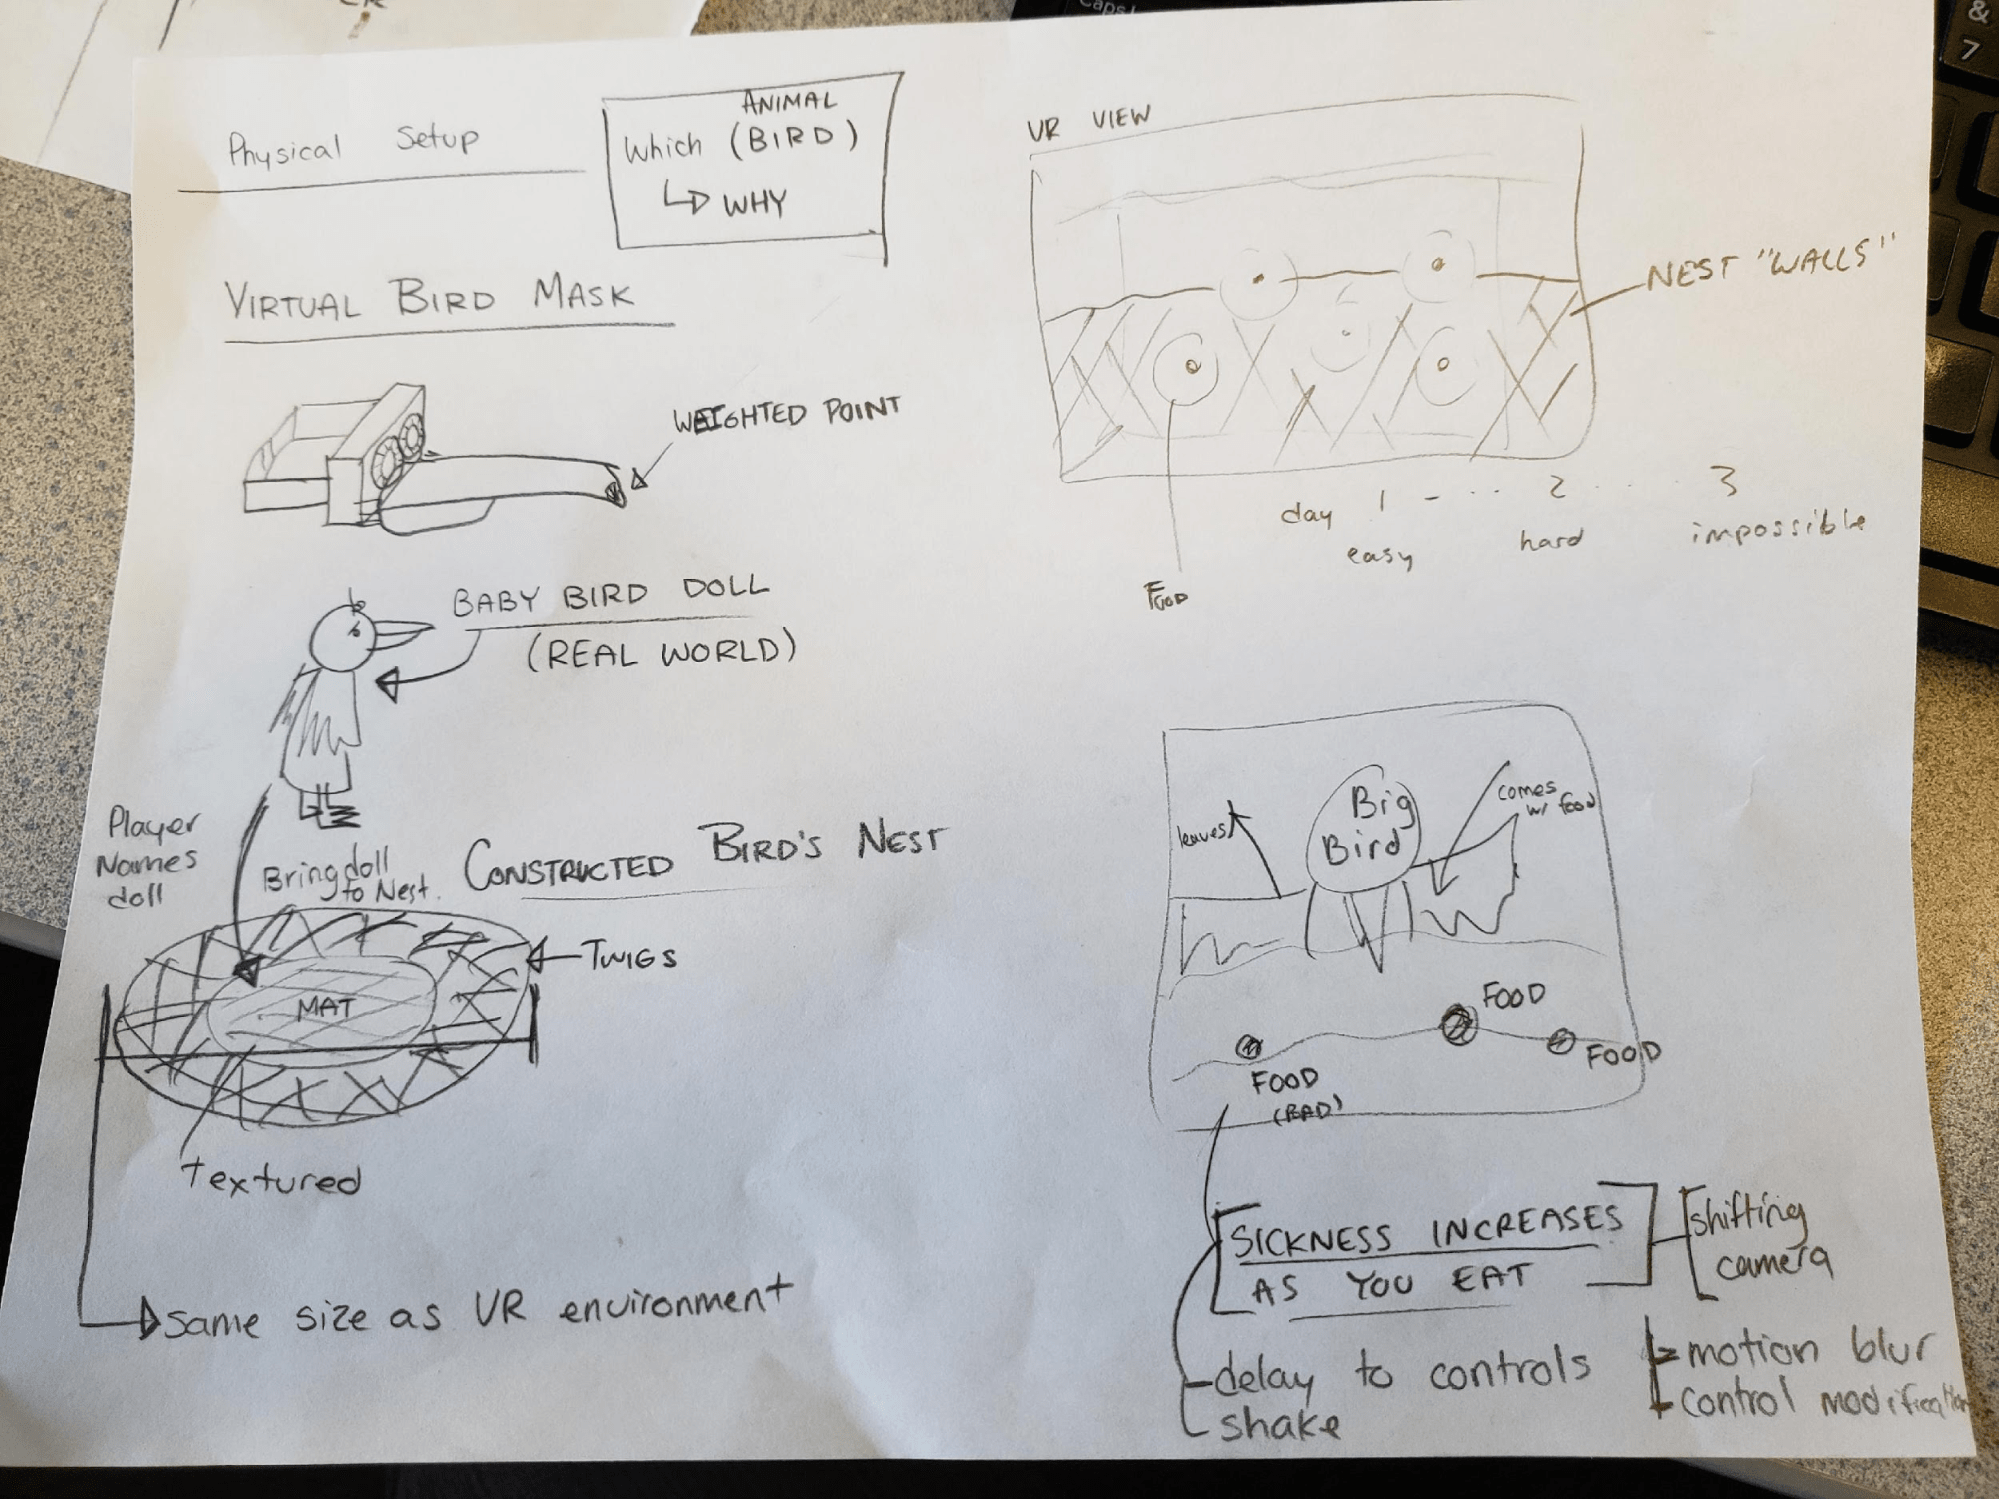 Physical Setup
ANIMAL
Which (BIRD)
WHY
VIRTUAL BIRD MASK
WEIGHTED POINT
BABY BIRD DOLL
(REAL WORLD)
Player
Names
doll
Bring doll
to Nest.
CONSTRUCTED BIRD'S NEST
TWIGS
MAT
textured
same size as VR environment
VR VIEW
NEST "WALLS"
FOOD
day 1 - ... 2 .... 3
easy hard impossible
Big
Bird
leaves
comes
w/ food
FOOD
FOOD
FOOD
(BAD)
SICKNESS INCREASES
AS YOU EAT
shifting
camera
delay to controls
shake
motion blur
control modification
Caps L
&
7